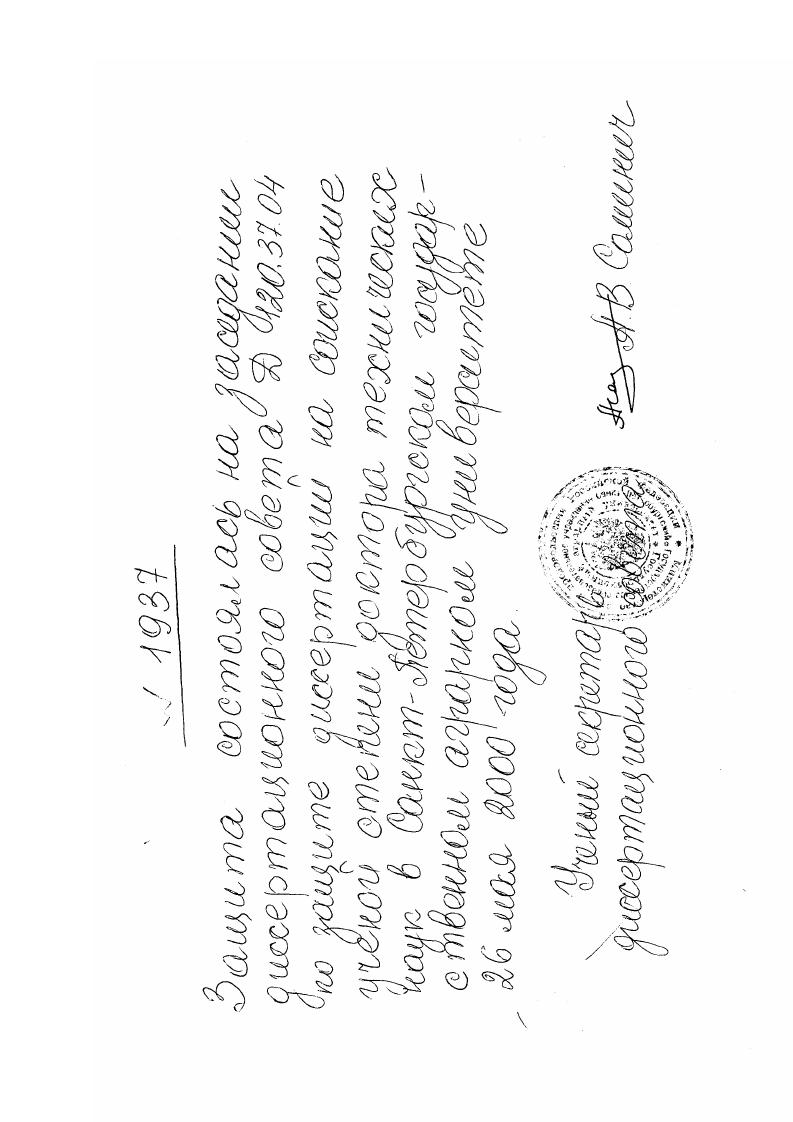 1937
Защита состоялась на заседании
диссертационного совета Д 120.37.04
по защите диссертаций на соискание
ученой степени доктора технических
наук в Санкт-Петербургском государ-
ственном аграрном университете
26 мая 2000 года.
Ученый секретарь
диссертационного совета
А.В Соминич